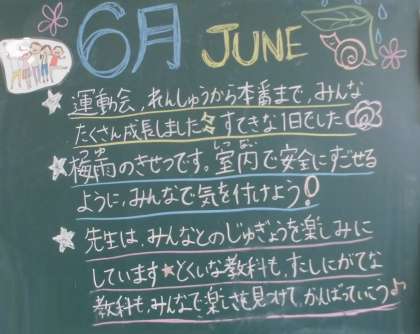 6月 JUNE
運動会、れんしゅうから本番まで、みんな
たくさん成長しました すてきな1日でした
梅雨のきせつです。室内で安全にすごせる
ように、みんなで気を付けよう!
先生は、みんなとのじゅぎょうを楽しみに
しています★とくいな教科も、すこしにがてな
教科も、みんなで、楽しさを見つけて、がんばっていこう♪